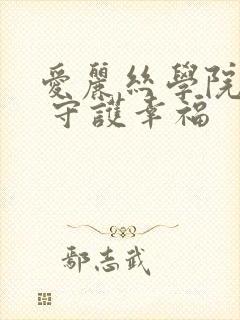 愛麗絲學院
守護幸福
鄢志武